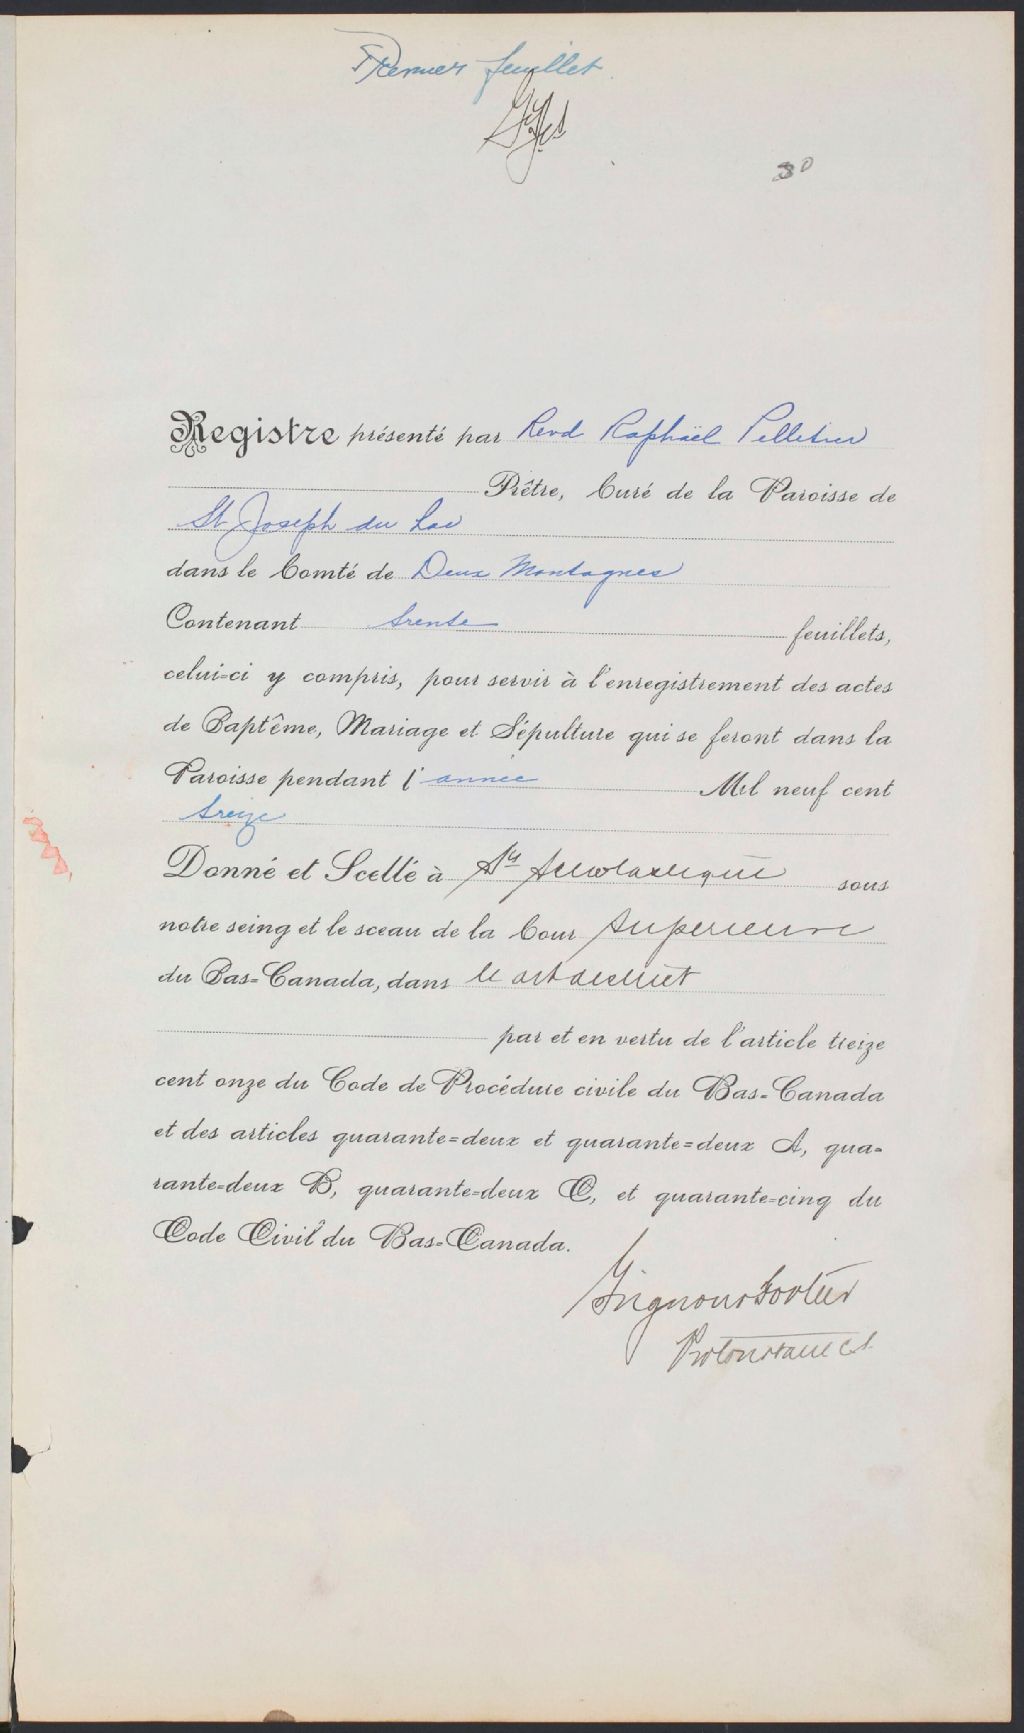 Premier feuillet
30
Registre présenté par Revd Raphaël Pelletier
Prêtre, Curé de la Paroisse de
St Joseph du Lac
dans le Comté de Deux Montagnes
Contenant trente feuillets,
celui-ci y compris, pour servir à l'enregistrement des actes
de Baptême, Mariage et Sépulture qui se feront dans la
Paroisse pendant l'année Mil neuf cent
treize
Donné et Scellé à Ste Scholastique sous
notre seing et le sceau de la Cour Superieure
du Bas-Canada, dans le dit district
par et en vertu de l'article treize
cent onze du Code de Procédure civile du Bas-Canada
et des articles quarante-deux et quarante-deux A, qua-
rante-deux B, quarante-deux C, et quarante-cinq du
Code Civil du Bas-Canada.
Grignon & Fortier
Protonotaire C.S.